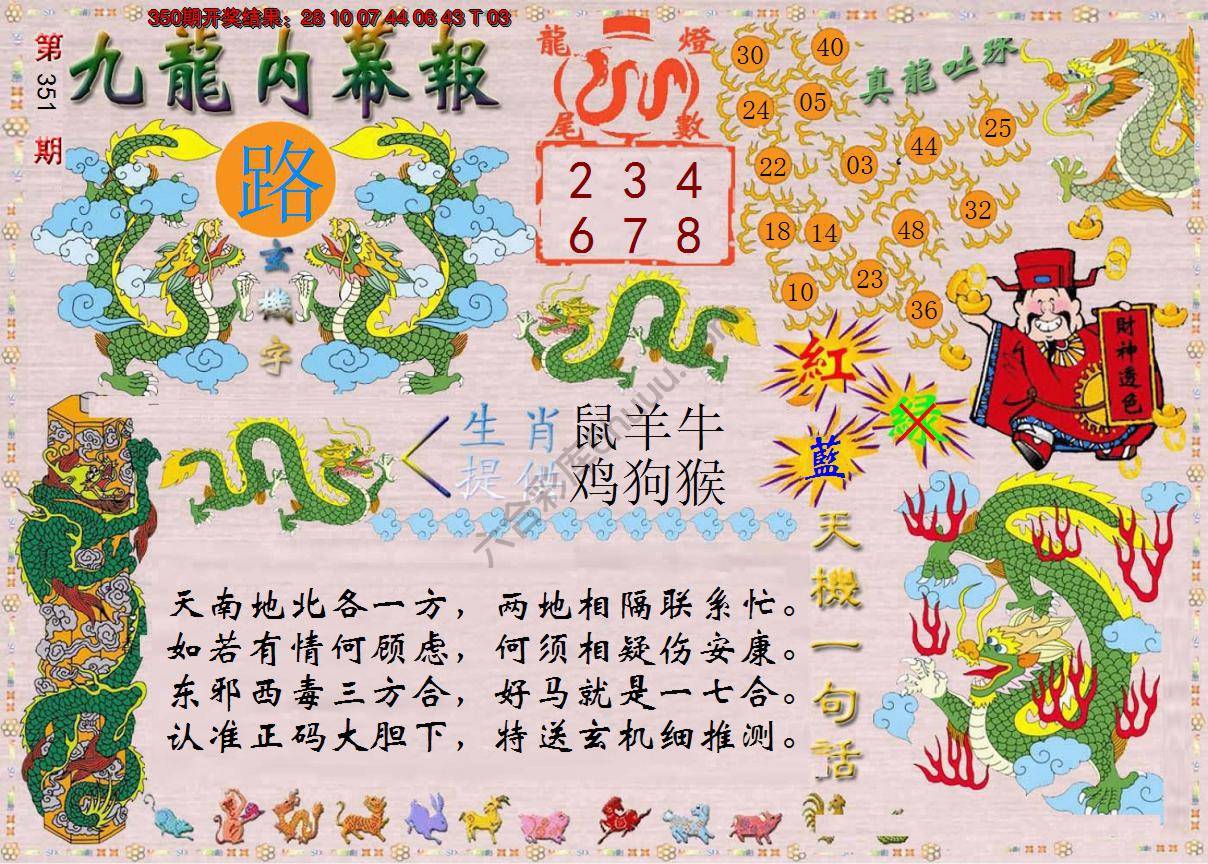 350期开奖结果：28 10 07 44 06 43 T 03
第351期
九龍内幕報
路
玄機字
龍燈尾數
2 3 4
6 7 8
真龍吐珠
30
40
24
05
25
44
22
03
32
18
14
48
23
10
36
財神透色
紅
绿
藍
生肖
提供
鼠羊牛
鸡狗猴
天南地北各一方，两地相隔联系忙。
如若有情何顾虑，何须相疑伤安康。
东邪西毒三方合，好马就是一七合。
认准正码大胆下，特送玄机细推测。
天機一句話